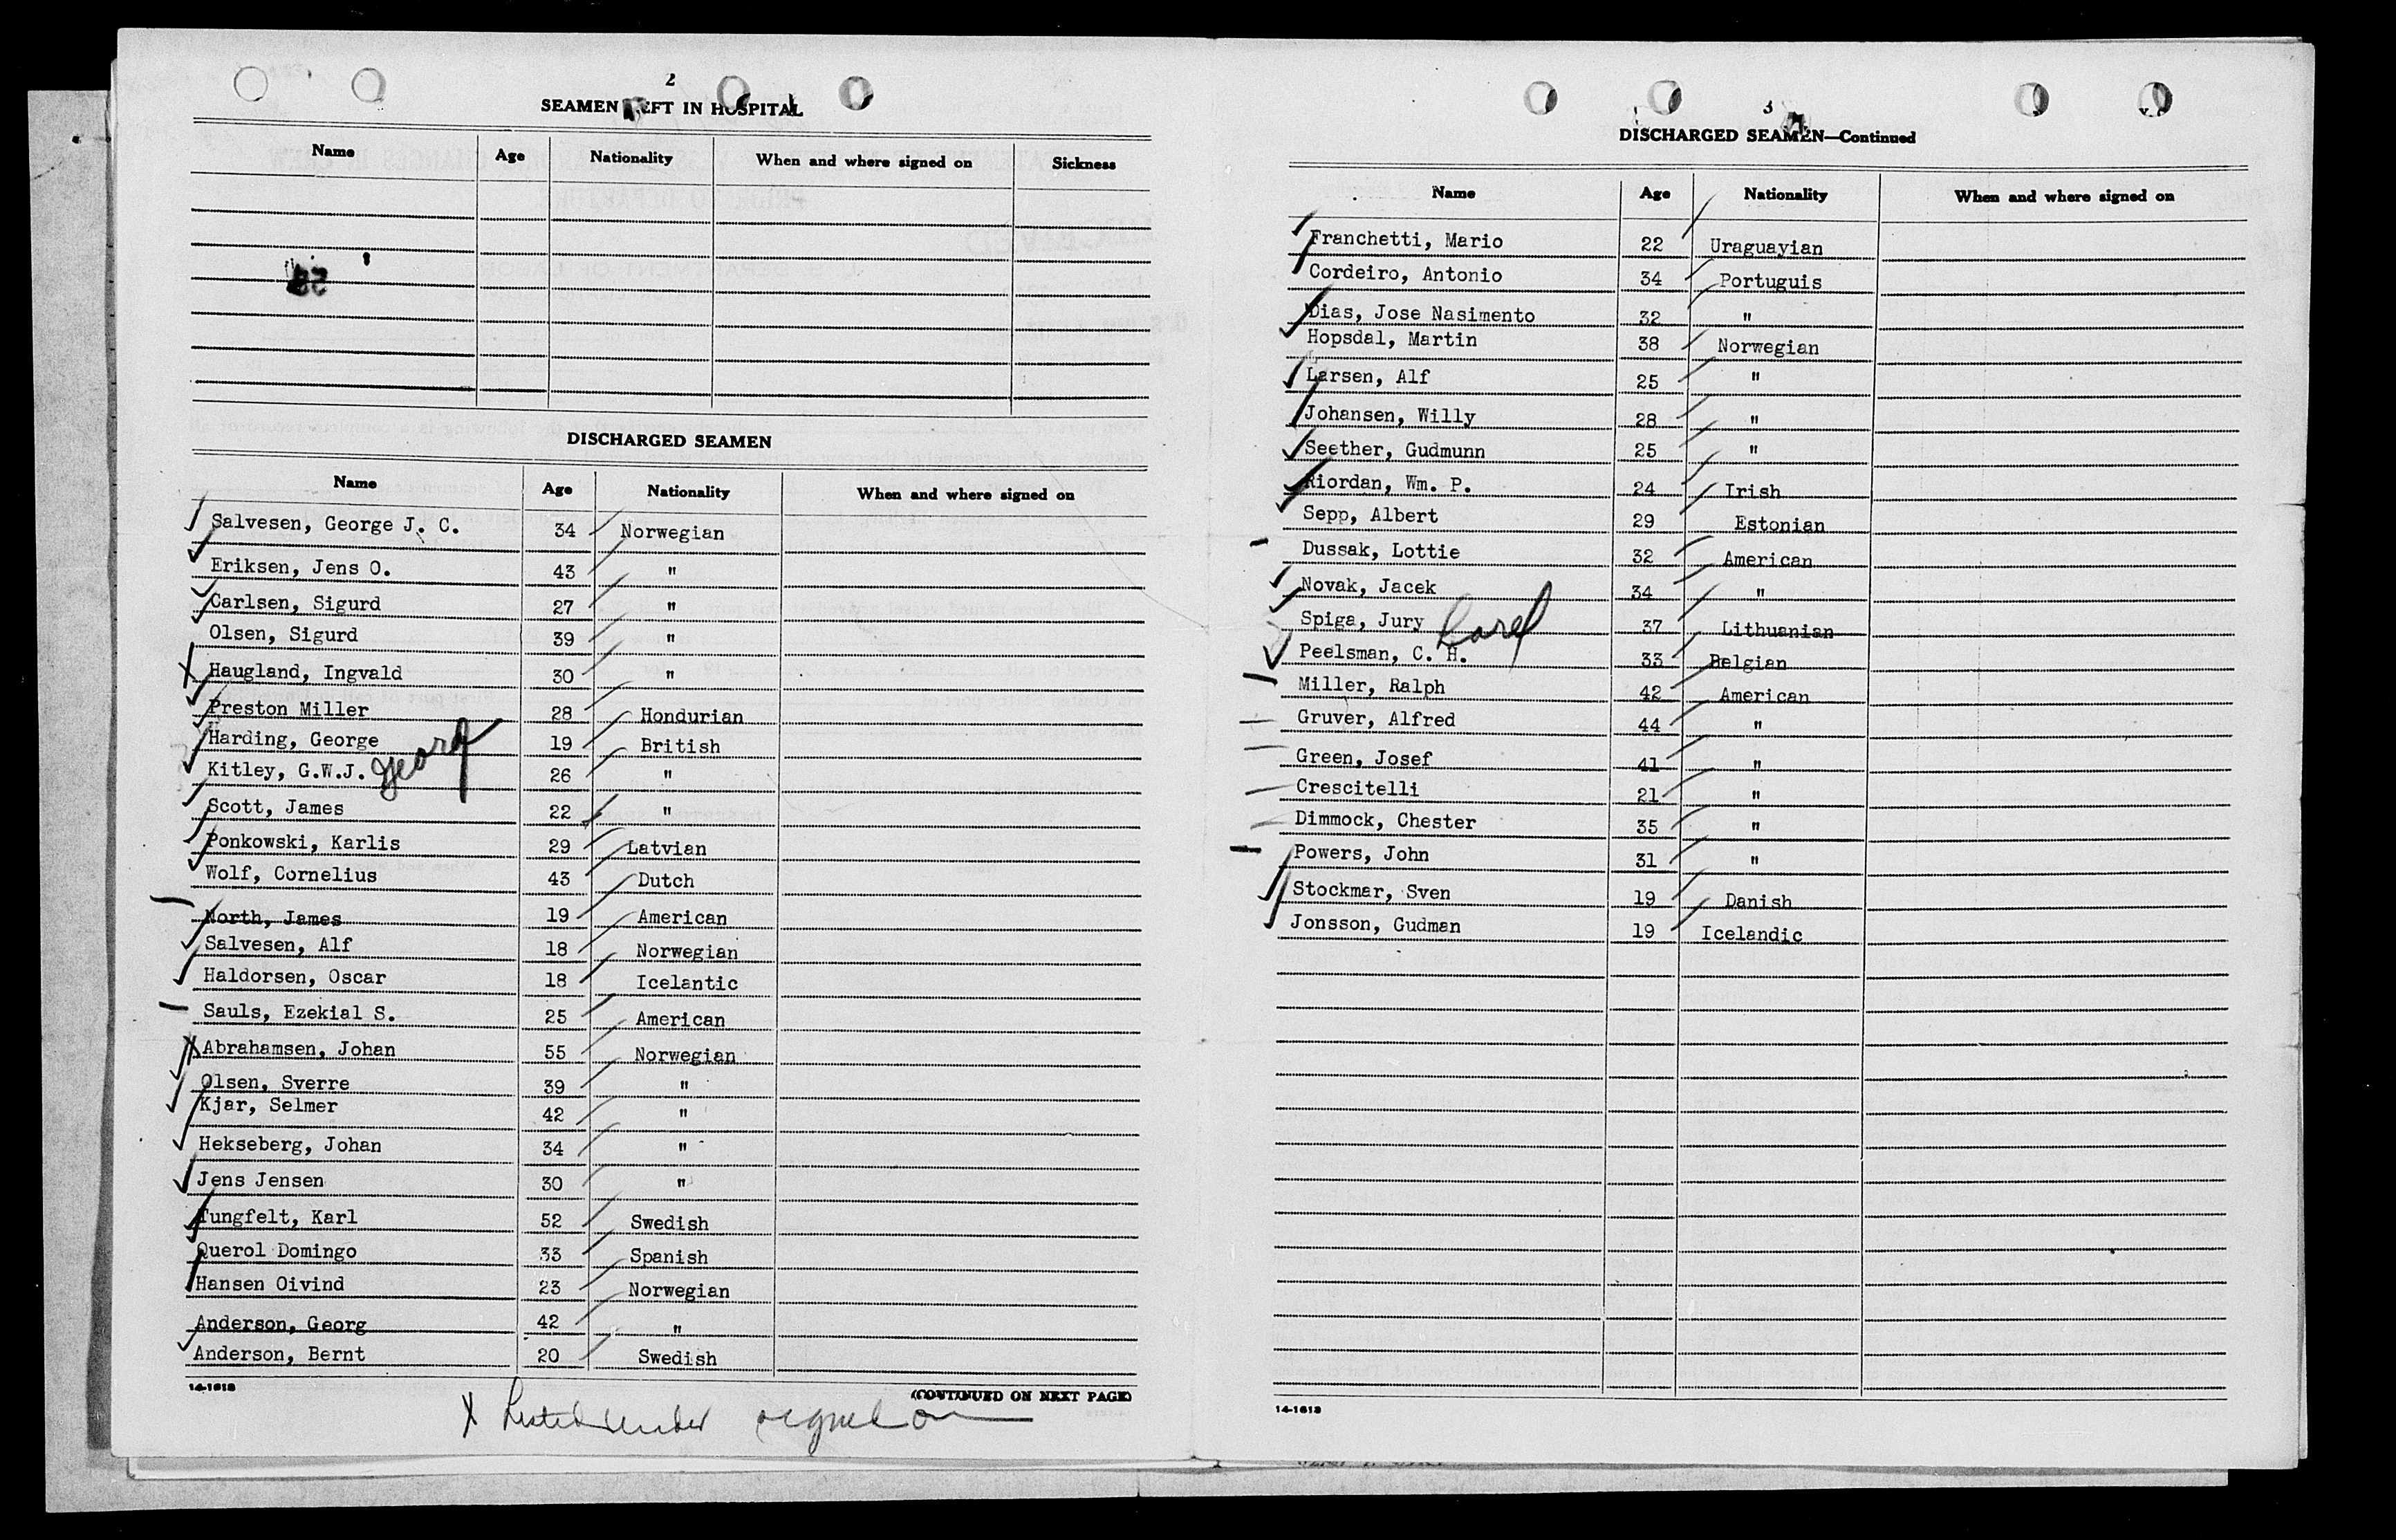 2
SEAMEN LEFT IN HOSPITAL
Name Age Nationality When and where signed on Sickness
DISCHARGED SEAMEN
Name Age Nationality When and where signed on
Salvesen, George J. C. 34 Norwegian
Eriksen, Jens O. 43 "
Carlsen, Sigurd 27 "
Olsen, Sigurd 39 "
X Haugland, Ingvald 30 "
Preston Miller 28 Hondurian
Harding, George 19 British
Kitley, G.W.J. Georg 26 "
Scott, James 22 "
Ponkowski, Karlis 29 Latvian
Wolf, Cornelius 43 Dutch
North, James 19 American
Salvesen, Alf 18 Norwegian
Haldorsen, Oscar 18 Icelantic
Sauls, Ezekial S. 25 American
X Abrahamsen, Johan 55 Norwegian
Olsen, Sverre 39 "
Kjar, Selmer 42 "
Hekseberg, Johan 34 "
Jens Jensen 30 "
Tungfelt, Karl 52 Swedish
Querol Domingo 33 Spanish
Hansen Oivind 23 Norwegian
Anderson, Georg 42 "
Anderson, Bernt 20 Swedish
14-1613 (CONTINUED ON NEXT PAGE)
X Listed under signed on
3
DISCHARGED SEAMEN—Continued
Name Age Nationality When and where signed on
Franchetti, Mario 22 Uraguayian
Cordeiro, Antonio 34 Portuguis
Dias, Jose Nasimento 32 "
Hopsdal, Martin 38 Norwegian
Larsen, Alf 25 "
Johansen, Willy 28 "
Seether, Gudmunn 25 "
Riordan, Wm. P. 24 Irish
Sepp, Albert 29 Estonian
Dussak, Lottie 32 American
Novak, Jacek 34 "
Spiga, Jury 37 Lithuanian
Peelsman, C. H. Karel 33 Belgian
Miller, Ralph 42 American
Gruver, Alfred 44 "
Green, Josef 41 "
Crescitelli 21 "
Dimmock, Chester 35 "
Powers, John 31 "
Stockmar, Sven 19 Danish
Jonsson, Gudman 19 Icelandic
14-1613